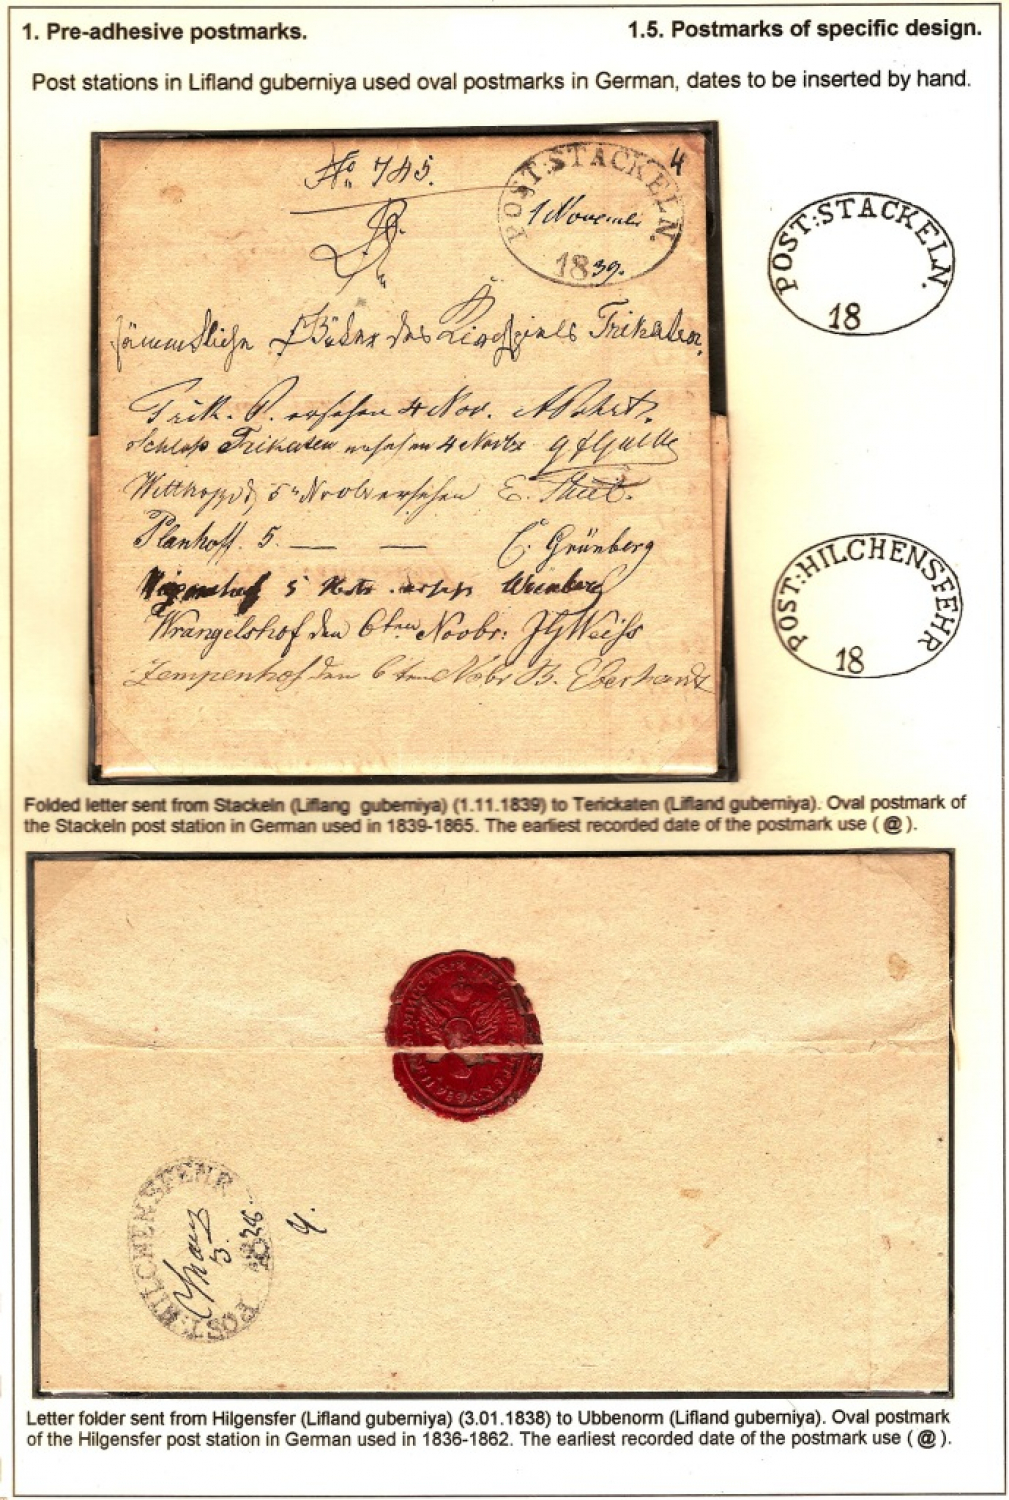 1. Pre-adhesive postmarks.
1.5. Postmarks of specific design.
Post stations in Lifland guberniya used oval postmarks in German, dates to be inserted by hand.
No 745.
4
POST:STACKELN.
1 November
1839.
sämmtliche Güter des Kirchspiels Trikaten.
Trik. P. ersehen 4 Nov.
Schloß Trikaten ersehen 4 Novbr
5 Novbr ersehen E. Thiel.
Planhoff. 5. — — C. Grünberg
5 Weinberg
Wrangelshof den 6ten Novbr: JGWeiss
Zempenhof den 6ten Nobr B. Eberhardt
POST:STACKELN.
18
POST:HILCHENSFEHR
18
Folded letter sent from Stackeln (Liflang guberniya) (1.11.1839) to Terickaten (Lifland guberniya). Oval postmark of
the Stackeln post station in German used in 1839-1865. The earliest recorded date of the postmark use ( @ ).
POST:HILCHENSFEHR
3.
4.
Letter folder sent from Hilgensfer (Lifland guberniya) (3.01.1838) to Ubbenorm (Lifland guberniya). Oval postmark
of the Hilgensfer post station in German used in 1836-1862. The earliest recorded date of the postmark use ( @ ).